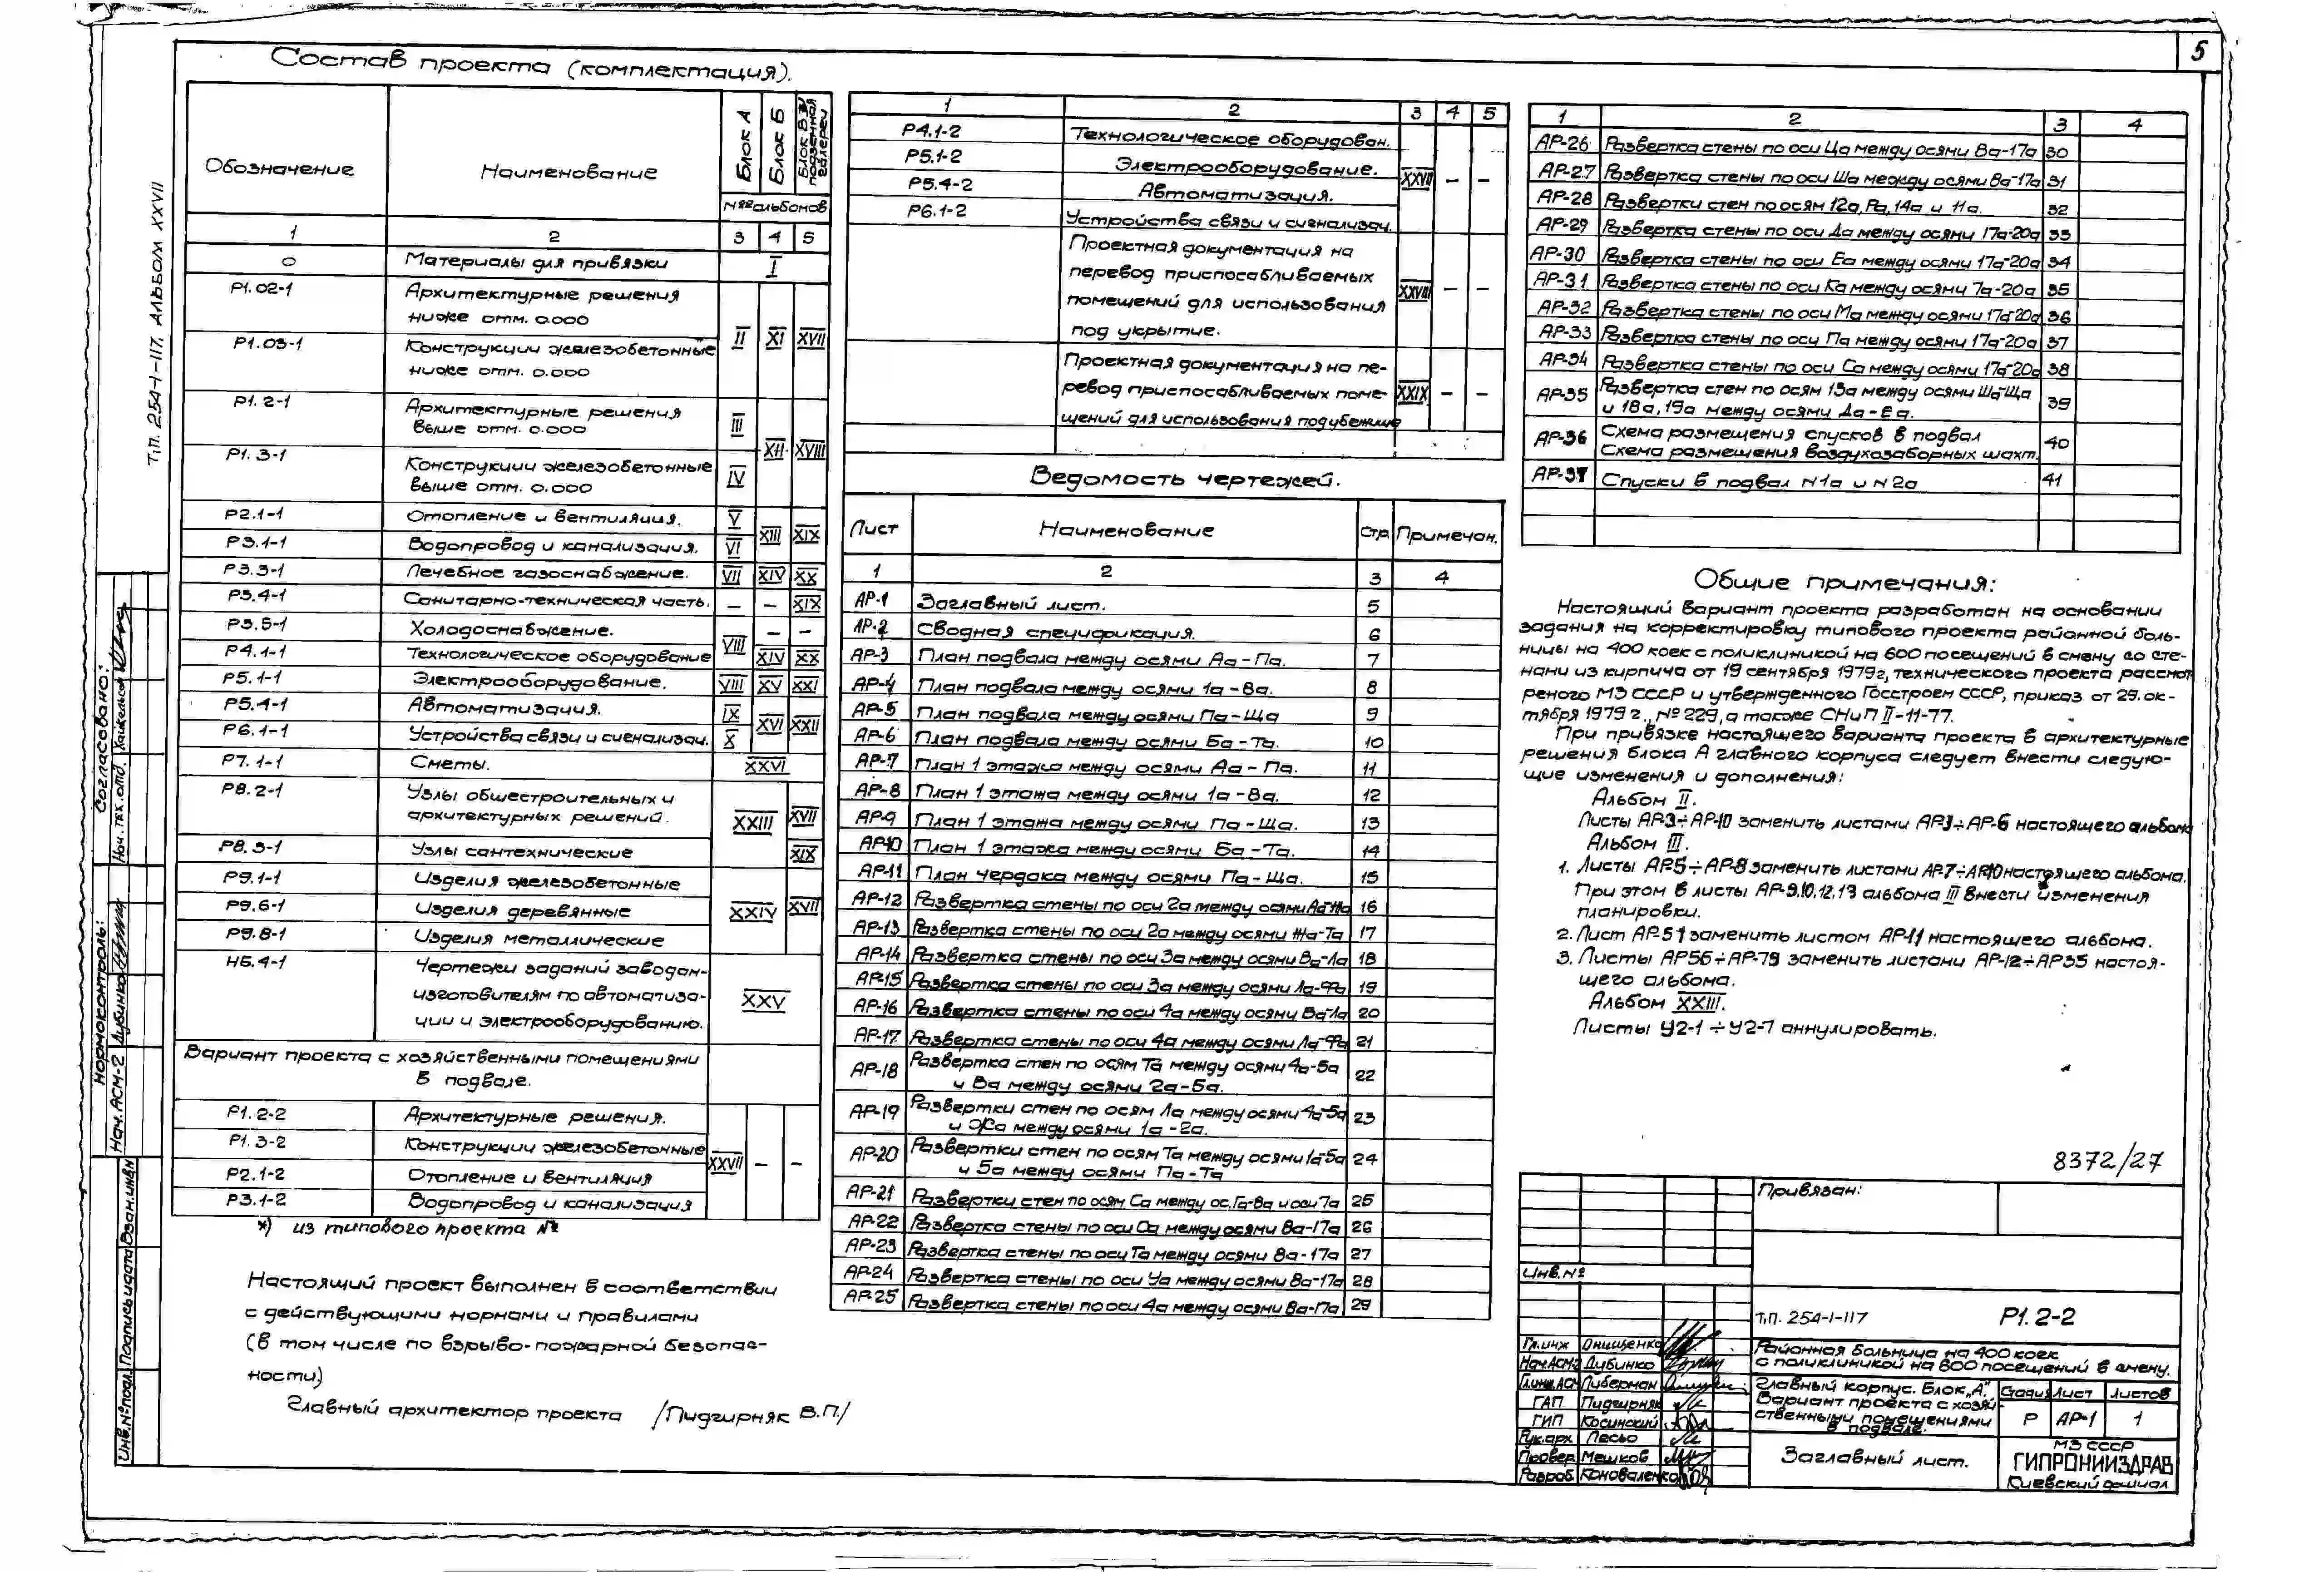 5
Т.П. 254-1-117. АЛЬБОМ XXVII
Состав проекта (комплектация).
Обозначение | Наименование | Блок А | Блок Б | Блок В и подземная галерея
№№ альбомов
1 | 2 | 3 | 4 | 5
0 | Материалы для привязки | I
Р1.02-1 | Архитектурные решения
ниже отм. 0.000
II | XI | XVII
Р1.03-1 | Конструкции железобетонные
ниже отм. 0.000
Р1.2-1 | Архитектурные решения
выше отм. 0.000 | III
XII | XVIII
Р1.3-1 | Конструкции железобетонные
выше отм. 0.000 | IV
Р2.1-1 | Отопление и вентиляция. | V
XIII | XIX
Р3.1-1 | Водопровод и канализация. | VI
Р3.3-1 | Лечебное газоснабжение. | VII | XIV | XX
Р3.4-1 | Санитарно-техническая часть. | – | – | XIX
Р3.5-1 | Холодоснабжение. | VIII | – | –
Р4.1-1 | Технологическое оборудование | XIV | XX
Р5.1-1 | Электрооборудование. | VIII | XV | XXI
Р5.4-1 | Автоматизация. | IX | XVI | XXII
Р6.1-1 | Устройства связи и сигнализац. | X
Р7.1-1 | Сметы. | XXVI
Р8.2-1 | Узлы общестроительных и
архитектурных решений. | XXIII | XVII
Р8.3-1 | Узлы сантехнические | XIX
Р9.1-1 | Изделия железобетонные
Р9.6-1 | Изделия деревянные | XXIV | XVII
Р9.8-1 | Изделия металлические
Н6.4-1 | Чертежи заданий заводам-
изготовителям по автоматиза-
ции и электрооборудованию. | XXV
Вариант проекта с хозяйственными помещениями
в подвале.
Р1.2-2 | Архитектурные решения.
Р1.3-2 | Конструкции железобетонные
XXVII | – | –
Р2.1-2 | Отопление и вентиляция
Р3.1-2 | Водопровод и канализация
*) из типового проекта №
Настоящий проект выполнен в соответствии
с действующими нормами и правилами
(в том числе по взрыво-пожарной безопас-
ности)
Главный архитектор проекта /Пидгирняк В.П./
1 | 2 | 3 | 4 | 5
Р4.1-2 | Технологическое оборудован.
Р5.1-2 | Электрооборудование.
XXVII | – | –
Р5.4-2 | Автоматизация.
Р6.1-2 | Устройства связи и сигнализац.
Проектная документация на
перевод приспосабливаемых
помещений для использования | XXVIII | – | –
под укрытие.
Проектная документация на пе-
ревод приспосабливаемых поме- | XXIX | – | –
щений для использования под убежище
Ведомость чертежей.
Лист | Наименование | Стр | Примечан.
1 | 2 | 3 | 4
АР-1 | Заглавный лист. | 5
АР-2 | Сводная спецификация. | 6
АР-3 | План подвала между осями Аа-Па. | 7
АР-4 | План подвала между осями 1а-8а. | 8
АР-5 | План подвала между осями Па-Ща | 9
АР-6 | План подвала между осями Ба-Та. | 10
АР-7 | План 1 этажа между осями Аа-Па. | 11
АР-8 | План 1 этажа между осями 1а-8а. | 12
АР-9 | План 1 этажа между осями Па-Ща. | 13
АР-10 | План 1 этажа между осями Ба-Та. | 14
АР-11 | План чердака между осями Па-Ща. | 15
АР-12 | Развертка стены по оси 2а между осями | 16
АР-13 | Развертка стены по оси 2а между осями Жа-Та | 17
АР-14 | Развертка стены по оси 3а между осями Ва-Ла | 18
АР-15 | Развертка стены по оси 3а между осями Ла-Фа | 19
АР-16 | Развертка стены по оси 4а между осями Ва-Ла | 20
АР-17 | Развертка стены по оси 4а между осями Ла-Фа | 21
АР-18 | Развертка стен по осям Та между осями 4а-5а
и Ва между осями 2а-5а. | 22
АР-19 | Развертки стен по осям Ла между осями 4а-5а
и Жа между осями 1а-2а. | 23
АР-20 | Развертки стен по осям Та между осями 1а-5а
и 5а между осями Па-Та | 24
АР-21 | Развертки стен по осям Са между ос. 7а-8а и оси 7а | 25
АР-22 | Развертка стены по оси Са между осями 8а-17а | 26
АР-23 | Развертка стены по оси Та между осями 8а-17а | 27
АР-24 | Развертка стены по оси Уа между осями 8а-17а | 28
АР-25 | Развертка стены по оси между осями 8а-17а | 29
1 | 2 | 3 | 4
АР-26 | Развертка стены по оси Ца между осями 8а-17а | 30
АР-27 | Развертка стены по оси Ша между осями 8а-17а | 31
АР-28 | Развертки стен по осям 12а, Ра, 14а и 11а. | 32
АР-29 | Развертка стены по оси Да между осями 17а-20а | 33
АР-30 | Развертка стены по оси Еа между осями 17а-20а | 34
АР-31 | Развертка стены по оси Ка между осями 7а-20а | 35
АР-32 | Развертка стены по оси Ма между осями 17а-20а | 36
АР-33 | Развертка стены по оси Па между осями 17а-20а | 37
АР-34 | Развертка стены по оси Са между осями 17а-20а | 38
АР-35 | Развертка стен по осям 13а между осями Ша-Ща
и 18а, 19а между осями Да-Еа. | 39
АР-36 | Схема размещения спусков в подвал
Схема размещения воздухозаборных шахт. | 40
АР-37 | Спуски в подвал N1а и N2а | 41
Общие примечания:
Настоящий вариант проекта разработан на основании
задания на корректировку типового проекта районной боль-
ницы на 400 коек с поликлиникой на 600 посещений в смену со сте-
нами из кирпича от 19 сентября 1979г, технического проекта рассмот
реного МЗ СССР и утвержденного Госстроем СССР, приказ от 29. ок-
тября 1979 г., № 229, а также СНиП II-11-77.
При привязке настоящего варианта проекта в архитектурные
решения блока А главного корпуса следует внести следую-
щие изменения и дополнения:
Альбом II.
Листы АР-3÷АР-10 заменить листами АР-3÷АР-6 настоящего альбома
Альбом III.
1. Листы АР-5÷АР-8 заменить листами АР-7÷АР-10 настоящего альбома.
При этом в листы АР-9,10,12,13 альбома III внести изменения
планировки.
2. Лист АР-51 заменить листом АР-11 настоящего альбома.
3. Листы АР56÷АР-79 заменить листами АР-12÷АР35 настоя-
щего альбома.
Альбом XXIII.
Листы У2-1÷У2-7 аннулировать.
8372/27
Привязан:
Инв.№
Т.П. 254-1-117 | Р1.2-2
Гл.инж | Онищенко
Нач.АСМ-2 | Дубинко
Гл.инж.АСМ | Либерман
ГАП | Пидгирняк
ГИП | Косинский
Рук.арх | Лесьо
Провер. | Мешков
Разраб | Коноваленко
Районная больница на 400 коек
с поликлиникой на 600 посещений в смену.
Главный корпус. Блок „А".
Вариант проекта с хозяй-
ственными помещениями
в подвале.
Стадия | Лист | Листов
Р | АР-1 | 1
Заглавный лист.
МЗ СССР
ГИПРОНИИЗДРАВ
Киевский филиал
Согласовано:
Нач. тех. отд.
Нормоконтроль:
Нач. АСМ-2 Дубинко
Инв.№подл. Подпись и дата Взам.инв.№